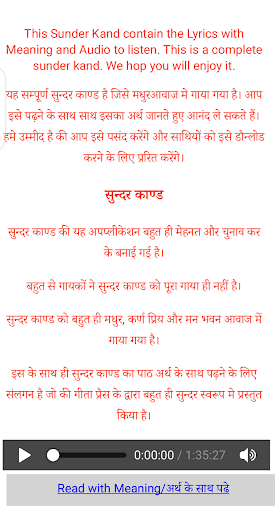 This Sunder Kand contain the Lyrics with
Meaning and Audio to listen. This is a complete
sunder kand. We hop you will enjoy it.
यह सम्पूर्ण सुन्दर काण्ड है जिसे मधुरआवाज मे गाया गया है। आप
इसे पढ़ने के साथ साथ इसका अर्थ जानते हुए आनंद ले सकते हैं।
हमे उम्मीद है की आप इसे पसंद करेंगे और साथियों को इसे डौन्लोड
करने के लिए प्ररित करेंगे।
सुन्दर काण्ड
सुन्दर काण्ड की यह अपप्लीकेशन बहुत ही मेहनत और चुनाव कर
के बनाई गई है।
बहुत से गायकों ने सुन्दर काण्ड को पूरा गाया ही नहीं है।
सुन्दर काण्ड को बहुत ही मधुर, कर्ण प्रिय और मन भवन आवाज में
गाया गया है।
इस के साथ ही सुन्दर काण्ड का पाठ अर्थ के साथ पढ़ने के लिए
संलगन है जो की गीता प्रैस के द्वारा बहुत ही सुन्दर स्वरूप मे प्रस्तुत
किया है।
0:00:00 / 1:35:27
Read with Meaning/अर्थ के साथ पढे